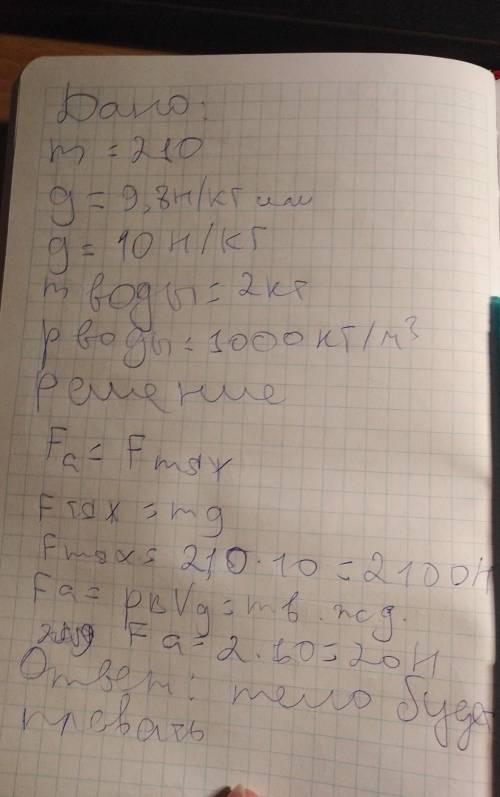 Дано:
m = 210
g = 9,8 н/кг или
g = 10 н/кг
m воды = 2кг
p воды = 1000 кг/м³
Решение
Fa = Fтях
Fтях = mg
Fтях = 210 · 10 = 2100Н
Fa = pвVg = mв . жg.
Fa = 2 . 10 = 20Н
Ответ: тело будет
плавать